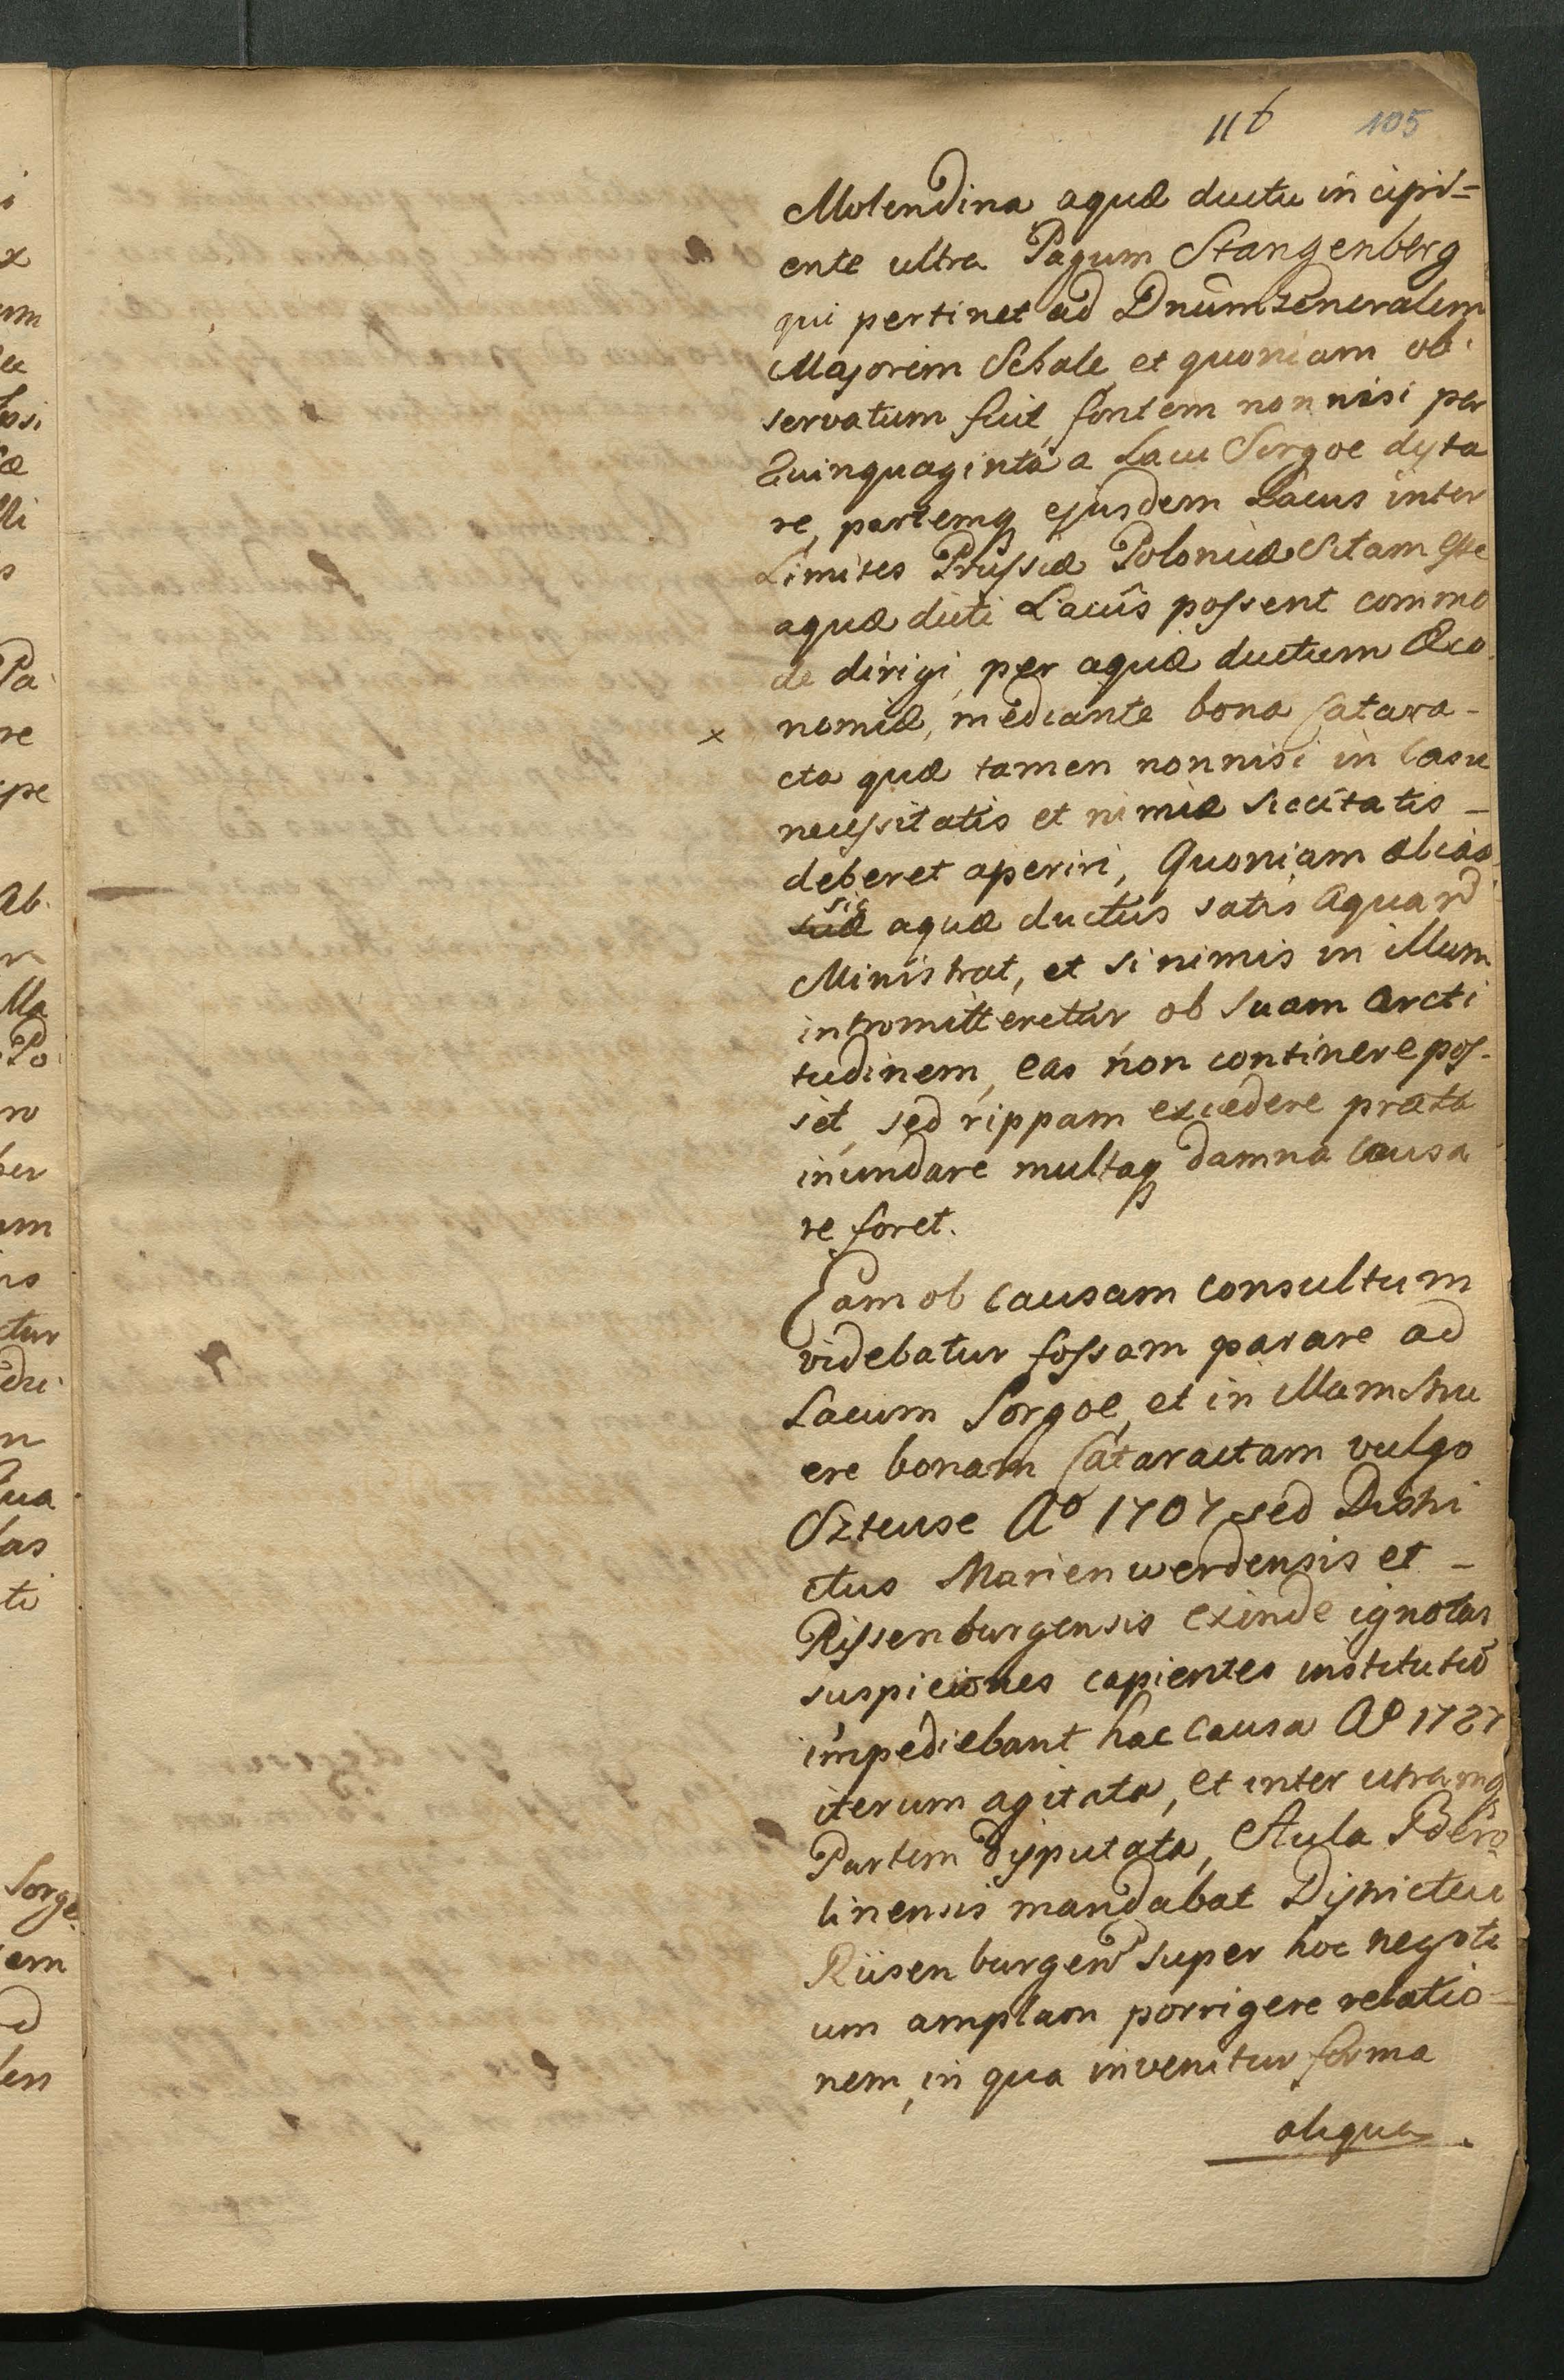 116 105
Molendina aquæ ductu incipi=
ente ultra Pagum Stangenberg
qui pertinet ad Dnum Generalem
Majorem Schale et quoniam ob
servatum fuit, fontem non nisi per
Quinquaginta a Lacu Sorgoe dysta
re, partemq ejusdem Lacus inter
Limites Prussiæ Poloniæ Sitam esse
aquæ dicti Lacûs possent commo
de dirigi, per aquæ ductum Œco
nomiæ, mediante bona Catara-
x
cta quæ tamen nonnisi in Casu
necessitatis et nimiæ siccitatis _
deberet aperiri, Quoniam alias
sic
suæ aquæ ductus satis Aquar
Ministrat, et si nimis in illum
intromitteretur ob suam Arcti
tudinem, eas non continere pos-
set, sed rippam excedere prata
inundare multaq damna Causa
re foret.
Eam ob Causam Consultum
videbatur fossam parare ad
Lacum Sorgoe, et in illam stru
ere bonam Cataractam vulgo
Szteuse Aº 1707 sed Distri
ctus Marienwerdensis et _
Rissenburgensis exinde ignotas
suspiciones capientes institutũ
impediebant hac Causa Aº 1727
iterum agitata, et inter utramq
Partem dysputata, Aula Bero
linensis mandabat Dystrictui
Riisenburgen super hoc negoti
um amplam porrigere relatio=
nem, in qua invenitur forma
aliqua
i
x
um
si
æ
lli
s
Pa
re
ype
Ab
Ma
Po
ro
ber
um
ns
ctur
n
Qua
las
ti
Sorge
em
d
len